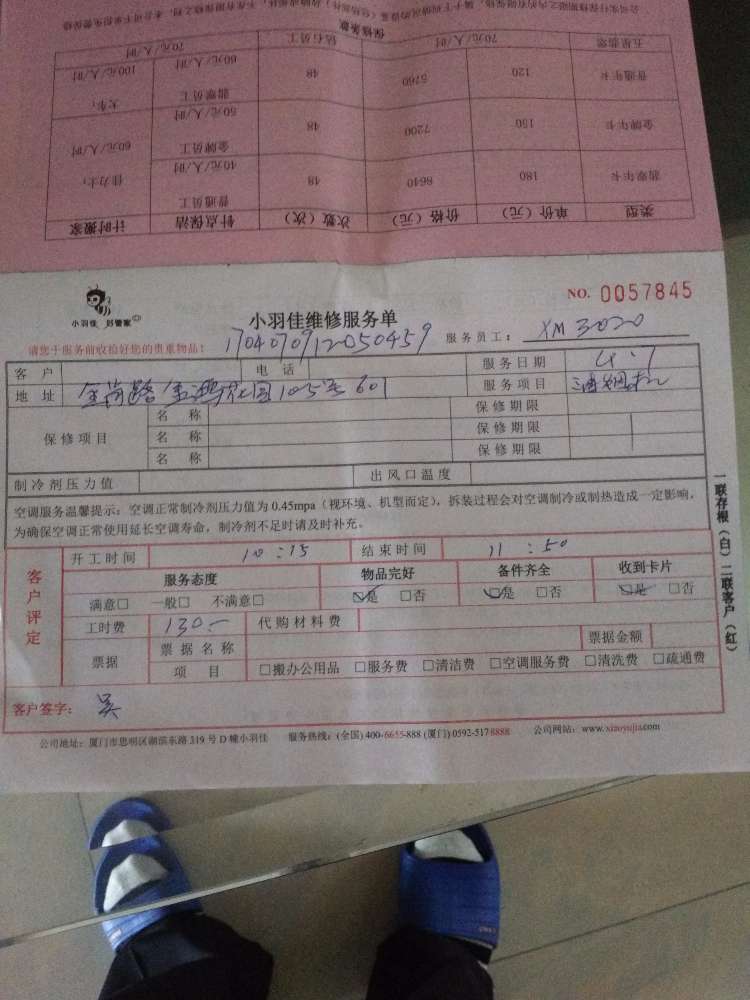 公司实行保修期限之内的有限保修，属于下列情况的设备
保修条款
类型 单价（元） 价格（元） 次数（次） 针点保洁 计时搬家
翡翠年卡 180 8640 48 普通员工 40元/人/时
金牌年卡 150 7200 48 金牌员工 50元/人/时 60元/人/时
普通年卡 120 5760 48 翡翠员工 60元/人/时 大车： 100元/人/时
五星翡翠 70元/人/时 钻石员工 70元/人/时
小羽佳 好管家
小羽佳维修服务单
NO. 0057845
请您于服务前收检好您的贵重物品！
1704070912050459
服务员工： XM3020
客户 电话 服务日期 4.7
地址 金尚路金鸿花园105号601 服务项目 油烟机
保修项目 名称 保修期限
名称 保修期限
名称 保修期限
制冷剂压力值 出风口温度
空调服务温馨提示：空调正常制冷剂压力值为 0.45mpa（视环境、机型而定），拆装过程会对空调制冷或制热造成一定影响，
为确保空调正常使用延长空调寿命，制冷剂不足时请及时补充。
客户评定
开工时间 10:15 结束时间 11:50
服务态度 物品完好 备件齐全 收到卡片
满意□ 一般□ 不满意□ ☑是 □否 ☑是 □否 ☑是 □否
工时费 130.— 代购材料费
票据 票据名称 票据金额
项目 □搬办公用品 □服务费 □清洁费 □空调服务费 □清洗费 □疏通费
客户签字： 吴
一联存根（白）二联客户（红）
公司地址：厦门市思明区湖滨东路 319 号 D 幢小羽佳 服务热线：(全国) 400-6655-888 (厦门) 0592-5178888 公司网站：www.xiaoyujia.com